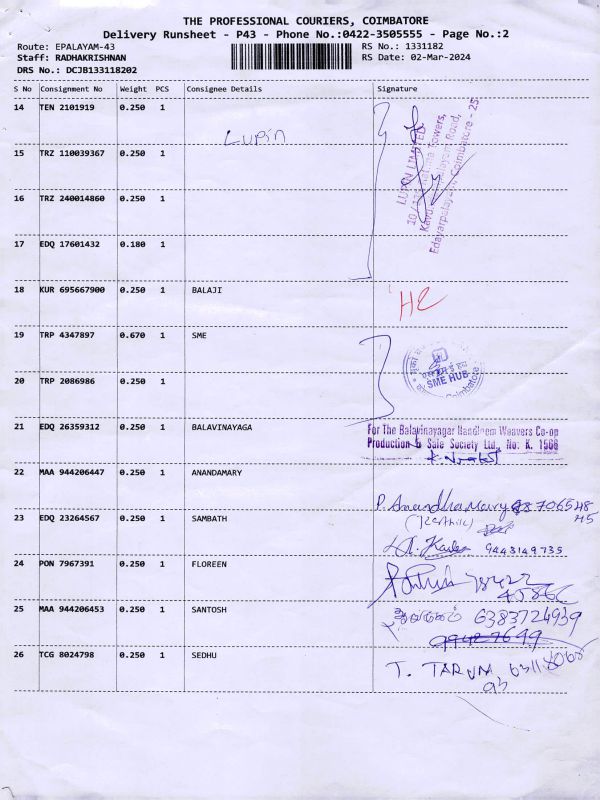 THE PROFESSIONAL COURIERS, COIMBATORE
Delivery Runsheet - P43 - Phone No.:0422-3505555 - Page No.:2
Route: EPALAYAM-43 RS No.: 1331182
Staff: RADHAKRISHNAN RS Date: 02-Mar-2024
DRS No.: DCJB133118202
S No Consignment No Weight PCS Consignee Details Signature
14 TEN 2101919 0.250 1
Lupin
LUPIN LIMITED
Towers,
Road,
Coimbatore - 25
15 TRZ 110039367 0.250 1
16 TRZ 240014860 0.250 1
17 EDQ 17601432 0.180 1
18 KUR 695667900 0.250 1 BALAJI
19 TRP 4347897 0.670 1 SME
SME HUB
Coimbatore
20 TRP 2086986 0.250 1
21 EDQ 26359312 0.250 1 BALAVINAYAGA
For The Balavinayagar Handloom Weavers Co-op
Production & Sale Society Ltd., No: K. 1566
22 MAA 944206447 0.250 1 ANANDAMARY
P. Anandhamary
23 EDQ 23264567 0.250 1 SAMBATH
9443149735
24 PON 7967391 0.250 1 FLOREEN
25 MAA 944206453 0.250 1 SANTOSH
6383724939
26 TCG 8024798 0.250 1 SEDHU
T. TARUN
93